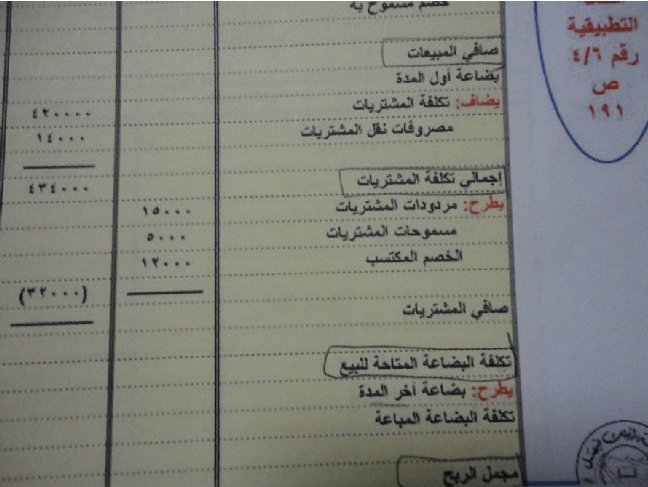 خصم مسموح به
صافي المبيعات
بضاعة أول المدة
يضاف: تكلفة المشتريات ٤٢٠٠٠٠
مصروفات نقل المشتريات ١٤٠٠٠
إجمالي تكلفة المشتريات ٤٣٤٠٠٠
يطرح: مردودات المشتريات ١٥٠٠٠
مسموحات المشتريات ٥٠٠٠
الخصم المكتسب ١٢٠٠٠
(٣٢٠٠٠)
صافي المشتريات
تكلفة البضاعة المتاحة للبيع
يطرح: بضاعة آخر المدة
تكلفة البضاعة المباعة
مجمل الربح
التطبيقية
رقم ٤/٦
ص
١٩١